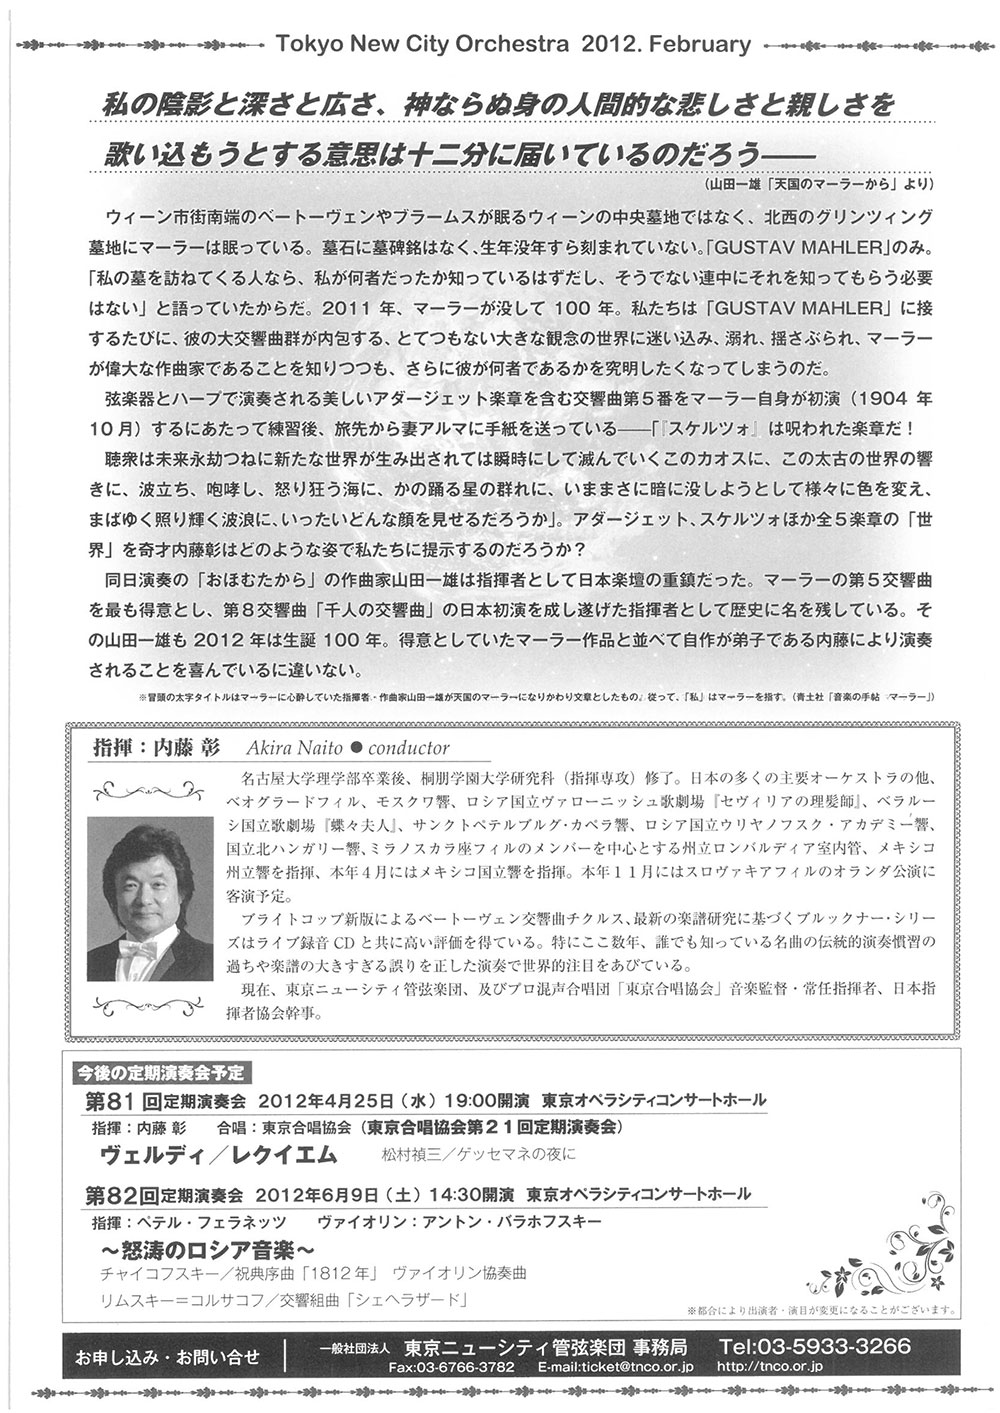 Tokyo New City Orchestra 2012. February
私の陰影と深さと広さ、神ならぬ身の人間的な悲しさと親しさを
歌い込もうとする意思は十二分に届いているのだろう――
（山田一雄「天国のマーラーから」より）
ウィーン市街南端のベートーヴェンやブラームスが眠るウィーンの中央墓地ではなく、北西のグリンツィング
墓地にマーラーは眠っている。墓石に墓碑銘はなく、生年没年すら刻まれていない。「GUSTAV MAHLER」のみ。
「私の墓を訪ねてくる人なら、私が何者だったか知っているはずだし、そうでない連中にそれを知ってもらう必要
はない」と語っていたからだ。2011 年、マーラーが没して 100 年。私たちは「GUSTAV MAHLER」に接
するたびに、彼の大交響曲群が内包する、とてつもない大きな観念の世界に迷い込み、溺れ、揺さぶられ、マーラー
が偉大な作曲家であることを知りつつも、さらに彼が何者であるかを究明したくなってしまうのだ。
弦楽器とハープで演奏される美しいアダージェット楽章を含む交響曲第５番をマーラー自身が初演（1904 年
10 月）するにあたって練習後、旅先から妻アルマに手紙を送っている――「『スケルツォ』は呪われた楽章だ！
聴衆は未来永劫つねに新たな世界が生み出されては瞬時にして滅んでいくこのカオスに、この太古の世界の響
きに、波立ち、咆哮し、怒り狂う海に、かの踊る星の群れに、いままさに暗に没しようとして様々に色を変え、
まばゆく照り輝く波浪に、いったいどんな顔を見せるだろうか」。アダージェット、スケルツォほか全５楽章の「世
界」を奇才内藤彰はどのような姿で私たちに提示するのだろうか？
同日演奏の「おほむたから」の作曲家山田一雄は指揮者として日本楽壇の重鎮だった。マーラーの第５交響曲
を最も得意とし、第８交響曲「千人の交響曲」の日本初演を成し遂げた指揮者として歴史に名を残している。そ
の山田一雄も 2012 年は生誕 100 年。得意としていたマーラー作品と並べて自作が弟子である内藤により演奏
されることを喜んでいるに違いない。
※冒頭の太字タイトルはマーラーに心酔していた指揮者・作曲家山田一雄が天国のマーラーになりかわり文章としたもの。従って、「私」はマーラーを指す。（青土社「音楽の手帖 マーラー」）
指揮：内藤 彰 Akira Naito ● conductor
名古屋大学理学部卒業後、桐朋学園大学研究科（指揮専攻）修了。日本の多くの主要オーケストラの他、
ベオグラードフィル、モスクワ響、ロシア国立ヴァローニッシュ歌劇場『セヴィリアの理髪師』、ベラルー
シ国立歌劇場『蝶々夫人』、サンクトペテルブルグ・カペラ響、ロシア国立ウリヤノフスク・アカデミー響、
国立北ハンガリー響、ミラノスカラ座フィルのメンバーを中心とする州立ロンバルディア室内管、メキシコ
州立響を指揮、本年４月にはメキシコ国立響を指揮。本年１１月にはスロヴァキアフィルのオランダ公演に
客演予定。
ブライトコップ新版によるベートーヴェン交響曲チクルス、最新の楽譜研究に基づくブルックナー・シリー
ズはライブ録音 CD と共に高い評価を得ている。特にここ数年、誰でも知っている名曲の伝統的演奏慣習の
過ちや楽譜の大きすぎる誤りを正した演奏で世界的注目をあびている。
現在、東京ニューシティ管弦楽団、及びプロ混声合唱団「東京合唱協会」音楽監督・常任指揮者、日本指
揮者協会幹事。
今後の定期演奏会予定
第81回定期演奏会 2012年4月25日（水）19:00開演 東京オペラシティコンサートホール
指揮：内藤 彰 合唱：東京合唱協会（東京合唱協会第２１回定期演奏会）
ヴェルディ／レクイエム 松村禎三／ゲッセマネの夜に
第82回定期演奏会 2012年6月9日（土）14:30開演 東京オペラシティコンサートホール
指揮：ペテル・フェラネッツ ヴァイオリン：アントン・バラホフスキー
～怒涛のロシア音楽～
チャイコフスキー／祝典序曲「1812年」 ヴァイオリン協奏曲
リムスキー＝コルサコフ／交響組曲「シェヘラザード」
※都合により出演者・演目が変更になることがございます。
お申し込み・お問い合せ
一般社団法人 東京ニューシティ管弦楽団 事務局 Tel:03-5933-3266
Fax:03-6766-3782 E-mail:ticket@tnco.or.jp http://tnco.or.jp